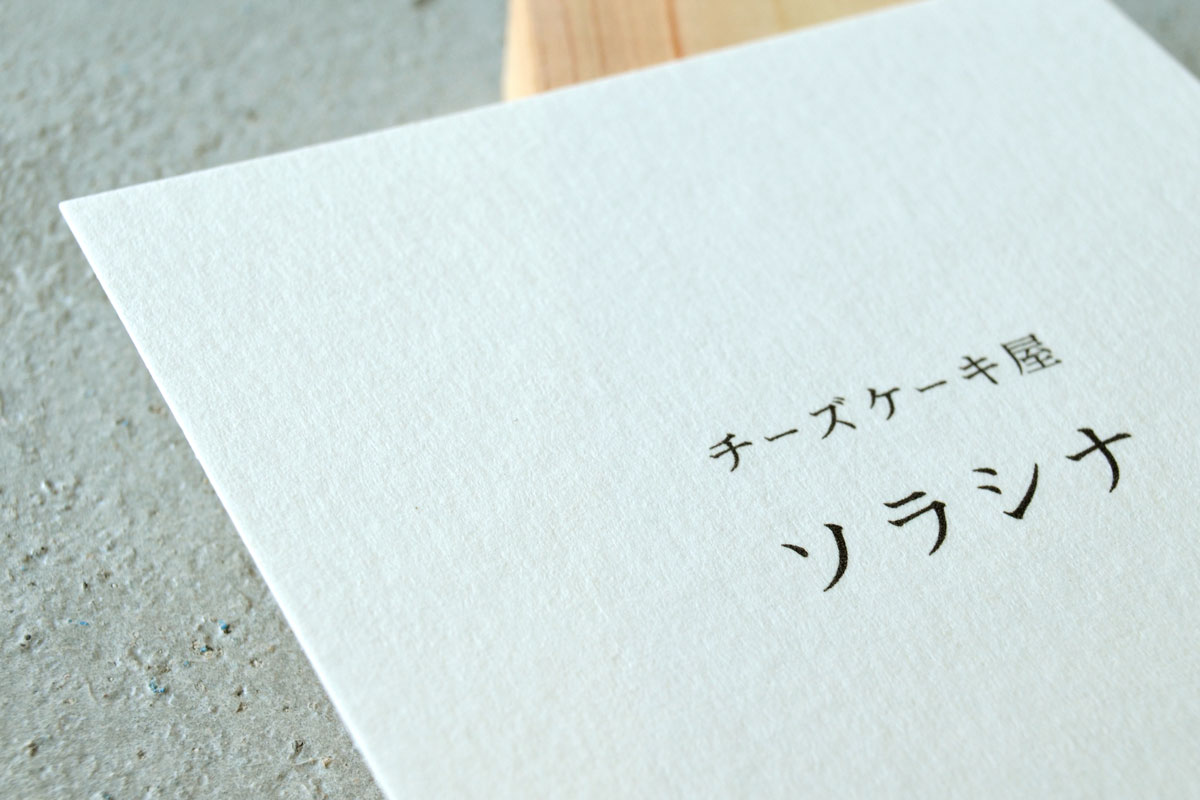 チーズケーキ屋
ソラシナ